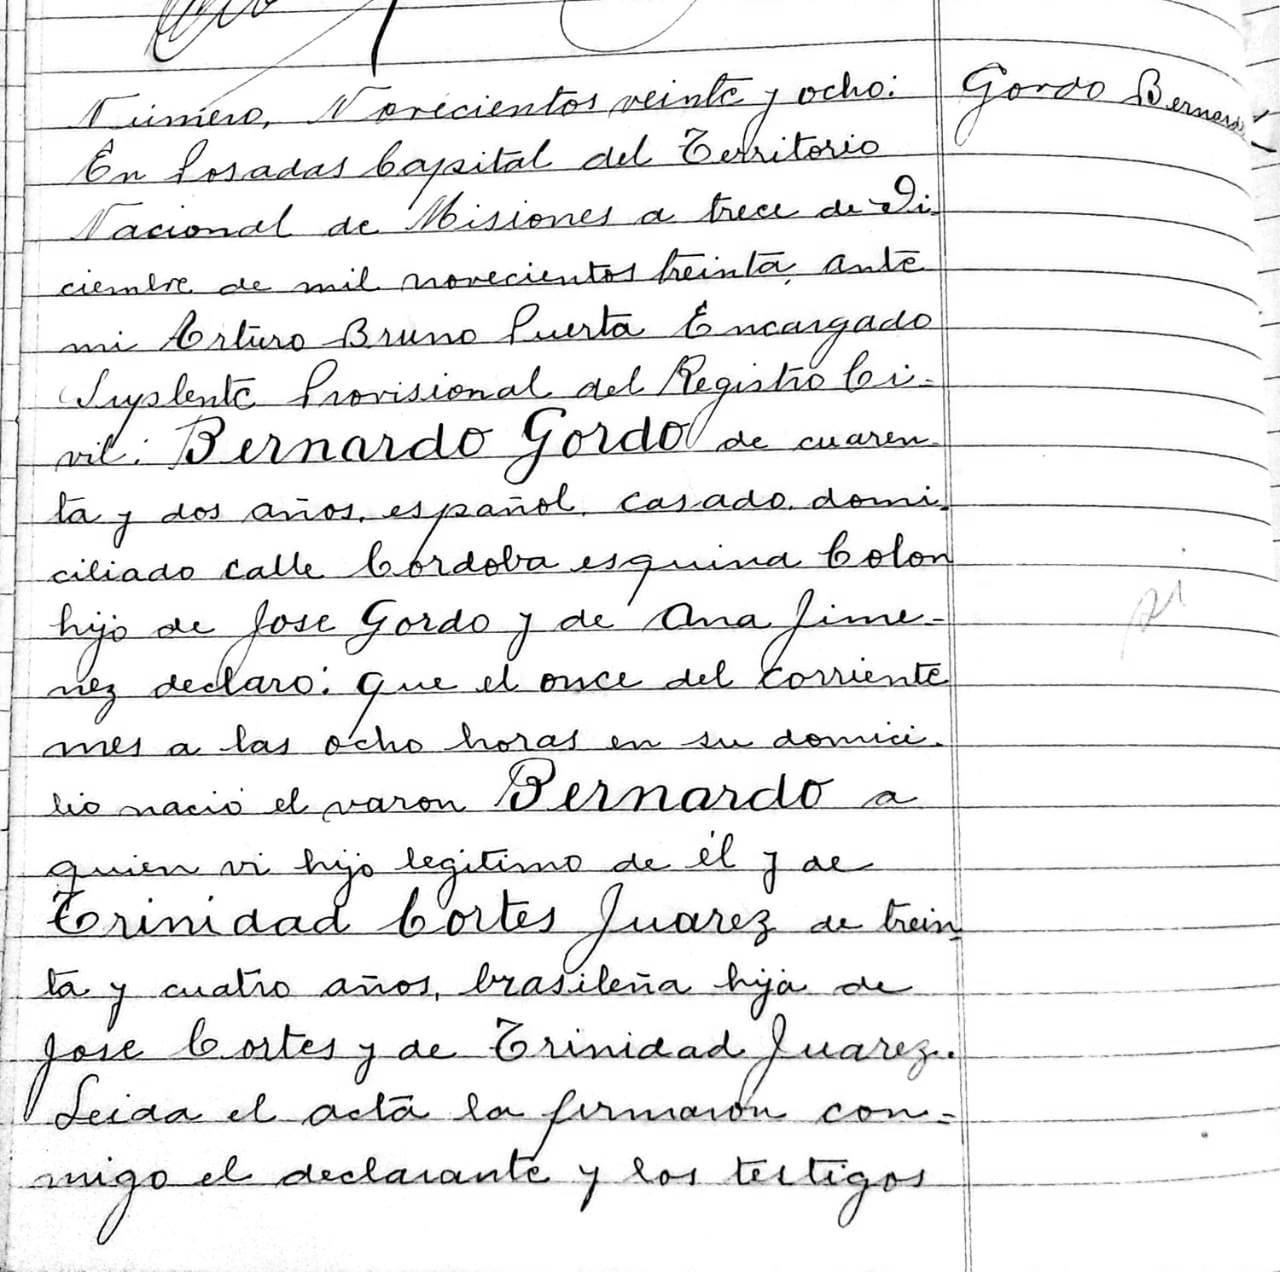 Número, Novecientos veinte y ocho:
Gordo Bernardo
En Posadas Capital del Territorio
Nacional de Misiones a trece de Di-
ciembre de mil novecientos treinta, ante
mi Arturo Bruno Puerta Encargado
Suplente Provisional del Registro Ci-
vil: Bernardo Gordo de cuaren-
ta y dos años, español, casado, domi-
ciliado calle Córdoba esquina Colon
hijo de Jose Gordo y de Ana Jime-
nez declaró: que el once del corriente
mes a las ocho horas en su domici-
lio nació el varon Bernardo a
quien vi hijo legitimo de él y de
Trinidad Cortes Juarez de trein-
ta y cuatro años, brasileña hija de
Jose Cortes y de Trinidad Juarez.
Leida el acta la firmaron con-
migo el declarante y los testigos